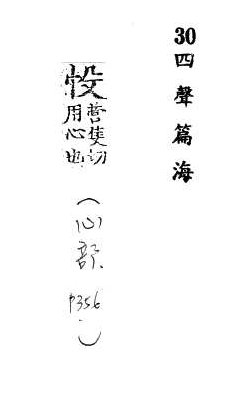 30四聲篇海
營隻切
用心也
(心部. P356.)